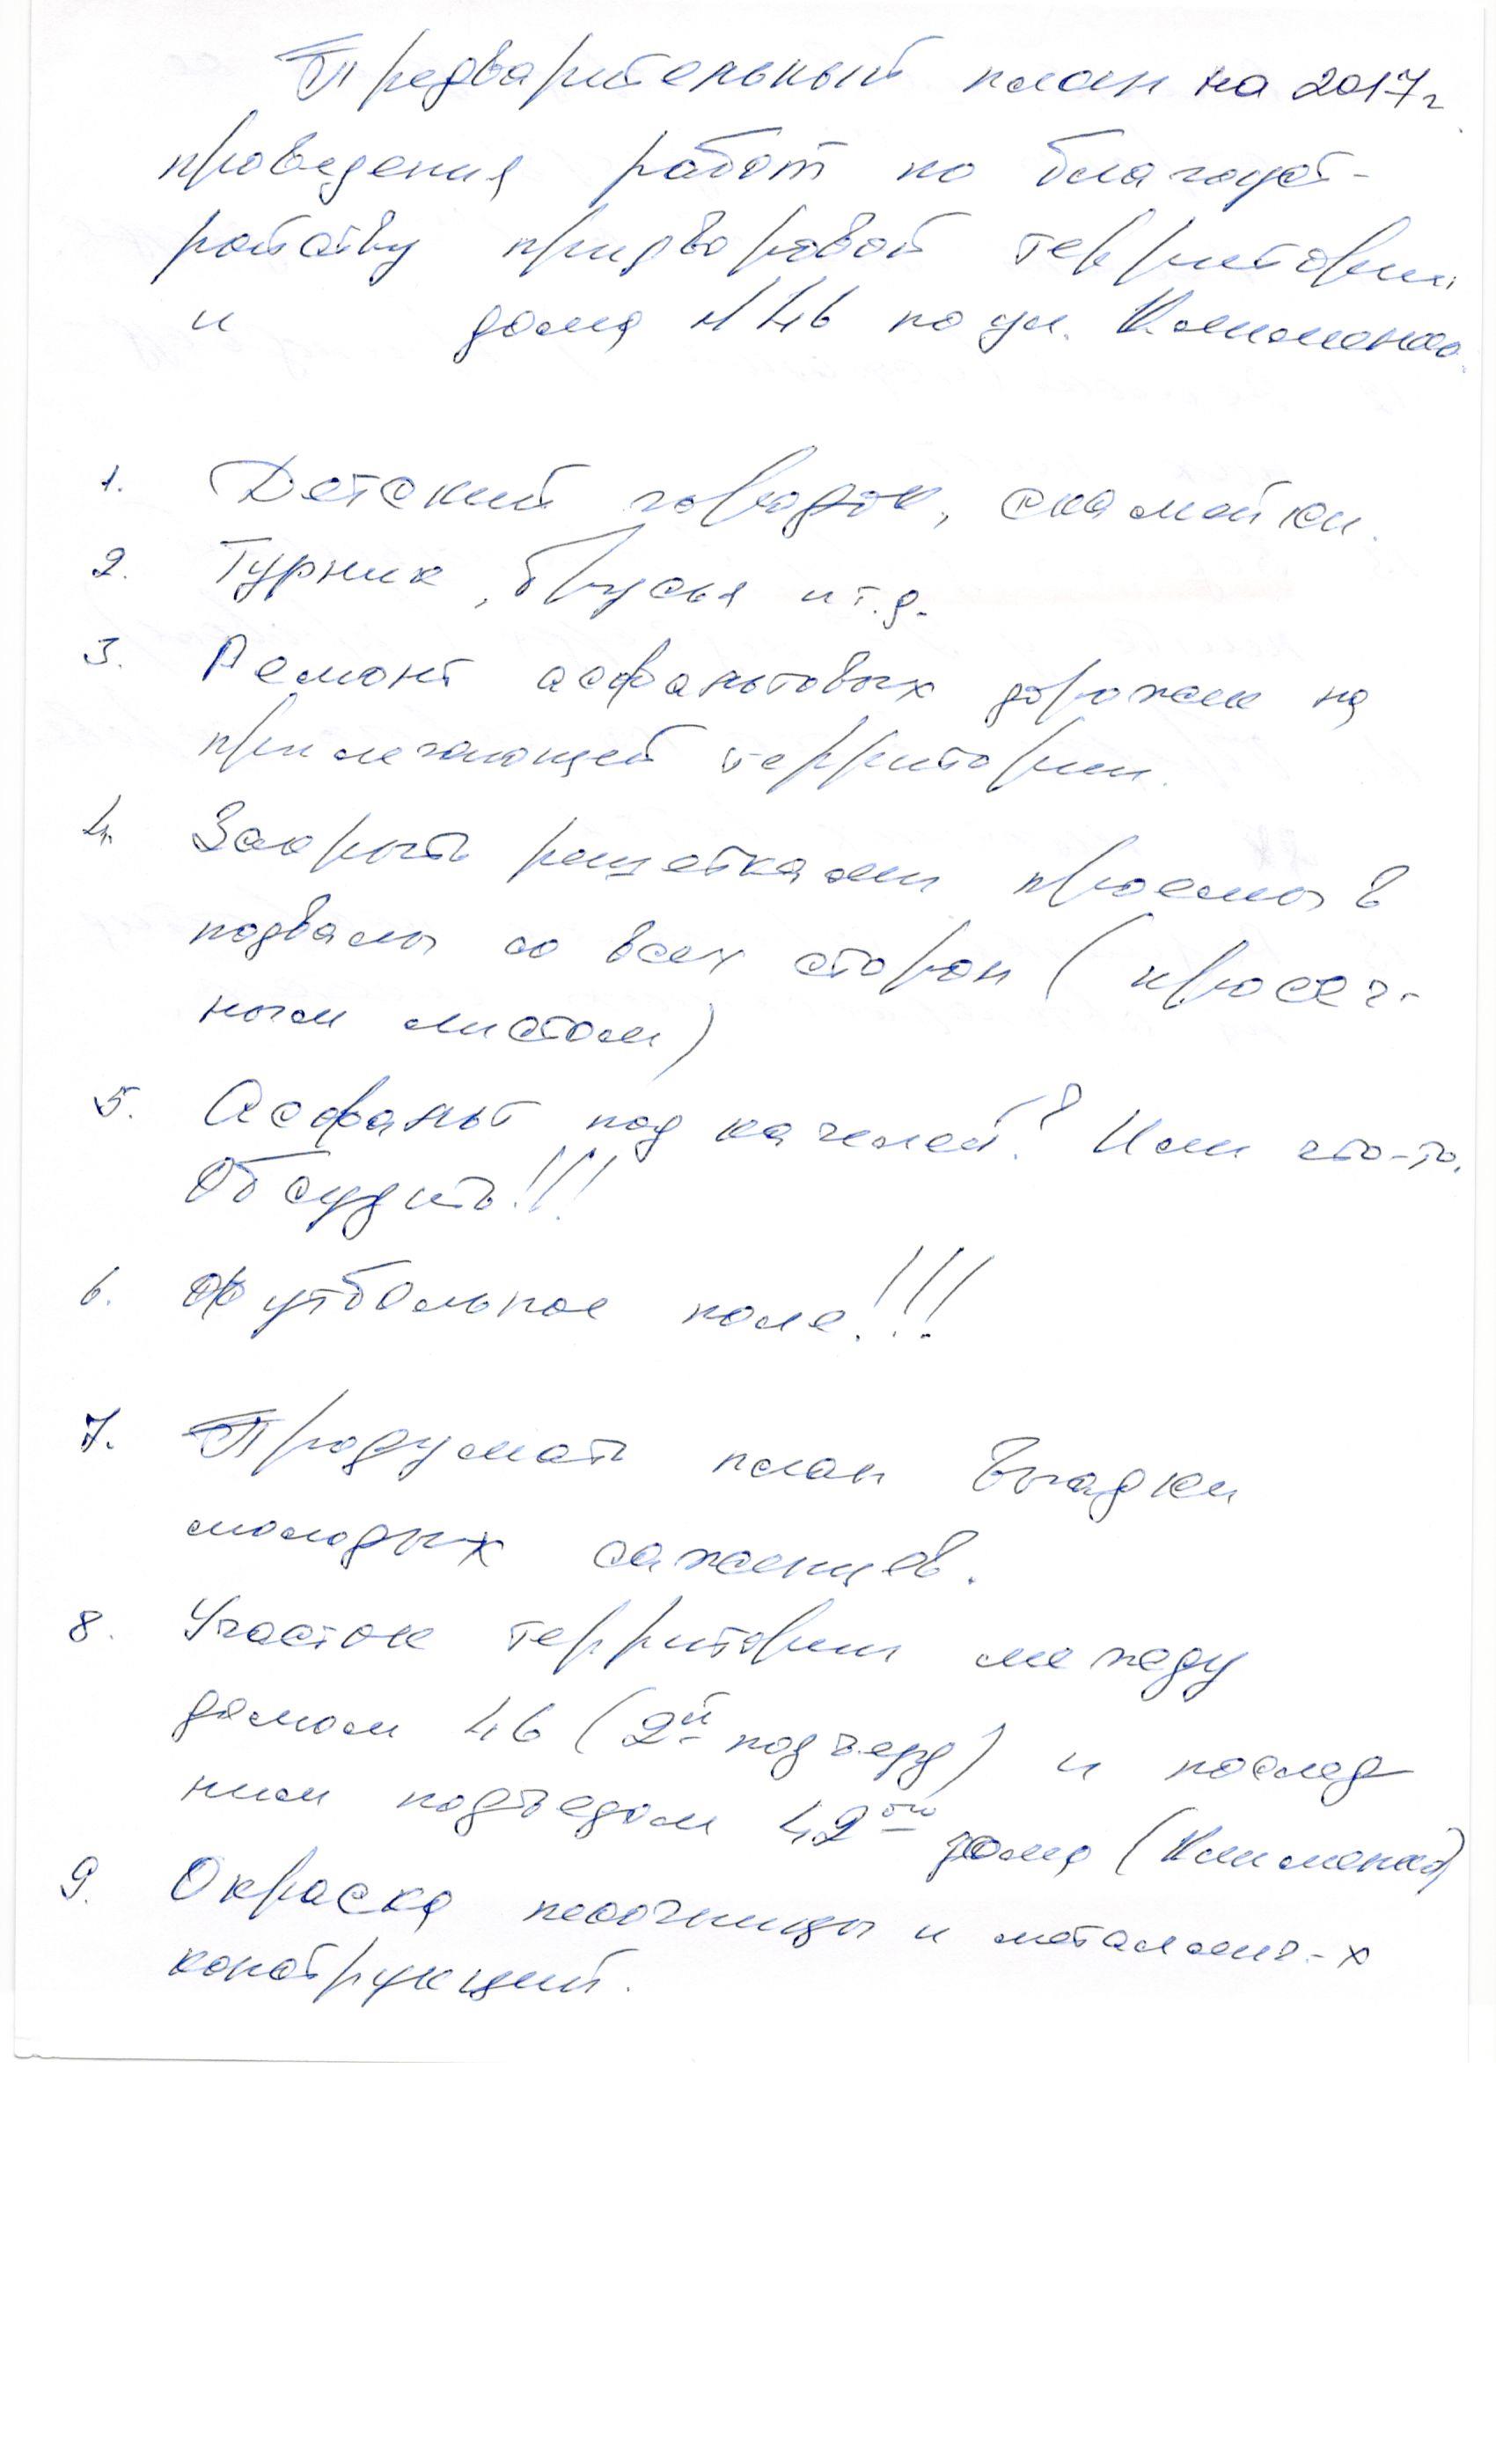 Предварительный план на 2017г.
проведения работ по благоуст-
ройству придворовой территории
и дома №46 по ул. Клименко.
1. Детский городок, скамейки.
2. Турник, брусья и т.д.
3. Ремонт асфальтовых дорожек на
прилегающей территории.
4. Закрыть решетками проемы в
подвалы со всех сторон (просеч-
ным листом)
5. Асфальт под качелей? Или что-то.
Обсудить!!!
6. Футбольное поле!!!
7. Продумать план высадки
молодых саженцев.
8. Участок территории между
домом 46 (2й подъезд) и послед
ним подъездом 42ого дома (Клименко)
9. Окраска песочницы и металлич-х
конструкций.